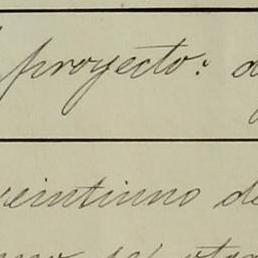 proyecto: d
veintiuno de